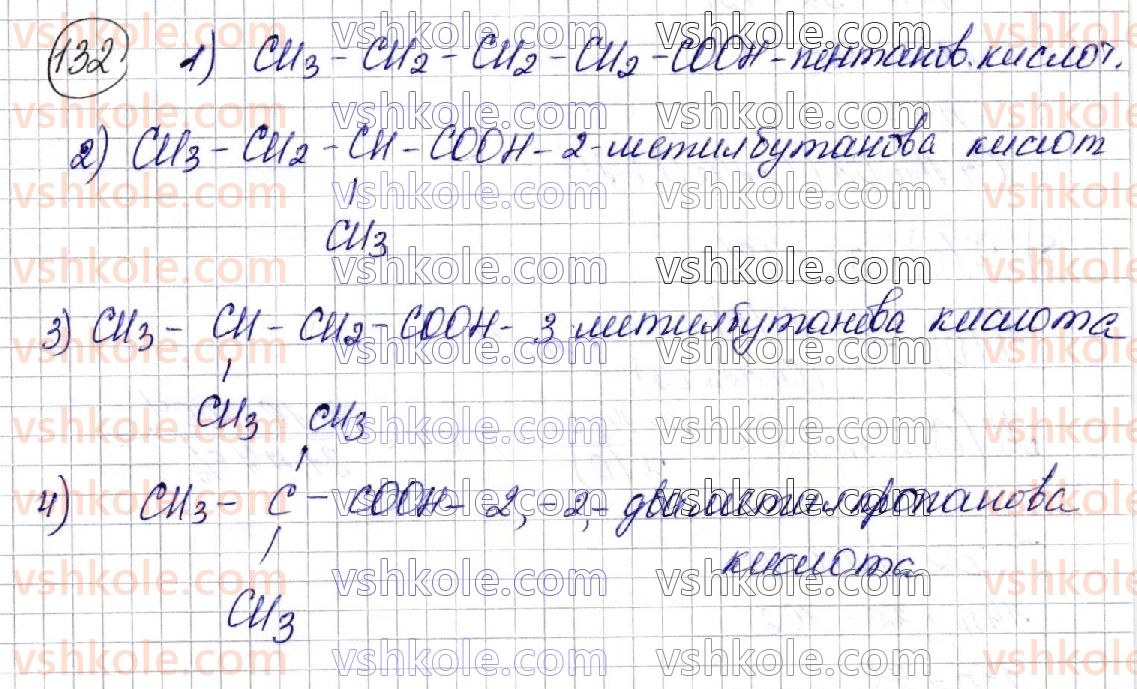 132 1) CH3 - CH2 - CH2 - CH2 - COOH - пентанов. кислот.
2) CH3 - CH2 - CH - COOH - 2-метилбутанова кислот
CH3
3) CH3 - CH - CH2 - COOH - 3 метилбутанова кислота
CH3 CH3
4) CH3 - C - COOH - 2, -2, - двиметилпропанова
кислота
CH3
vshkole.com